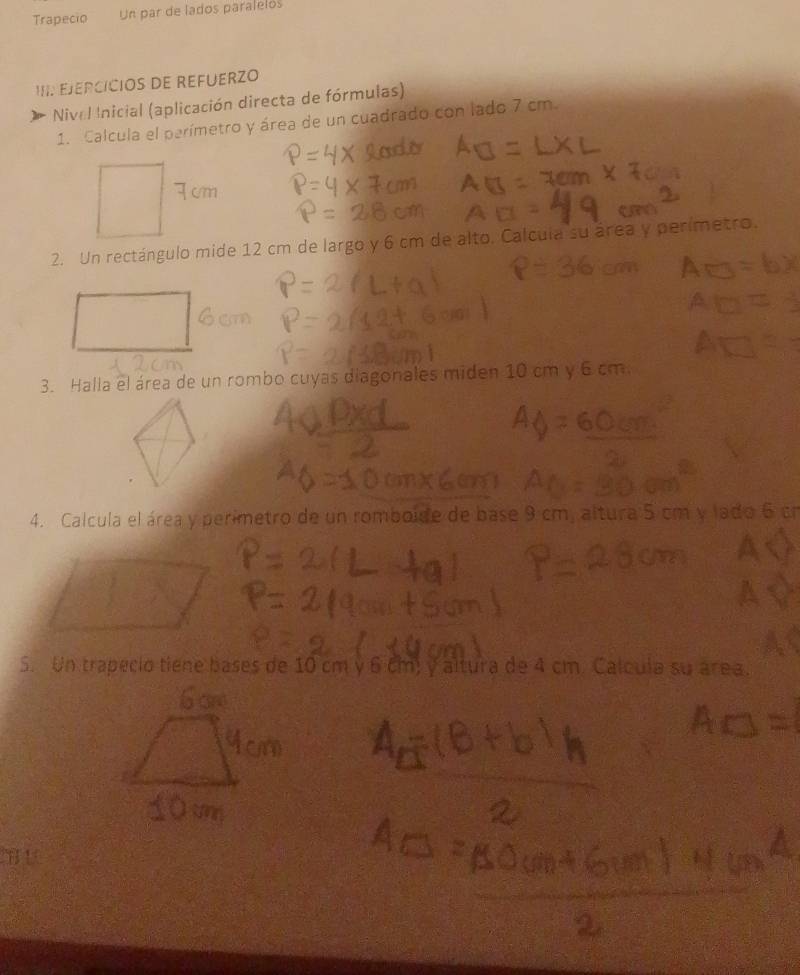 Trapecio Un par de lados paralelos
III. EJERCICIOS DE REFUERZO
➤ Nivel Inicial (aplicación directa de fórmulas)
1. Calcula el perímetro y área de un cuadrado con lado 7 cm.
P = 4 x lado A□ = L X L
7 cm P = 4 x 7 cm A□ = 7cm x 7cm
P = 28 cm A□ = 49 cm²
2. Un rectángulo mide 12 cm de largo y 6 cm de alto. Calcula su área y perímetro.
P = 2(L+a) P = 36 cm A▭ = b x
6 cm P = 2(12 + 6 cm) A▭ =
cm
P = 2(18cm) A▭ =
12cm
3. Halla el área de un rombo cuyas diagonales miden 10 cm y 6 cm.
A◊ = Dxd A◊ = 60 cm²
2 2
A◊ = 10 cm x 6 cm A◊ = 30 cm²
4. Calcula el área y perímetro de un romboide de base 9 cm, altura 5 cm y lado 6 cm
P = 2(L + a) P = 28 cm A◊
P = 2(9cm + 5cm) A◊
P = 2 (14 cm) A◊
5. Un trapecio tiene bases de 10 cm y 6 cm, y altura de 4 cm. Calcula su área.
6 cm
4 cm A▭ = (B + b) h A▭ =
10 cm 2
A▭ = (10cm + 6cm) 4 cm
2